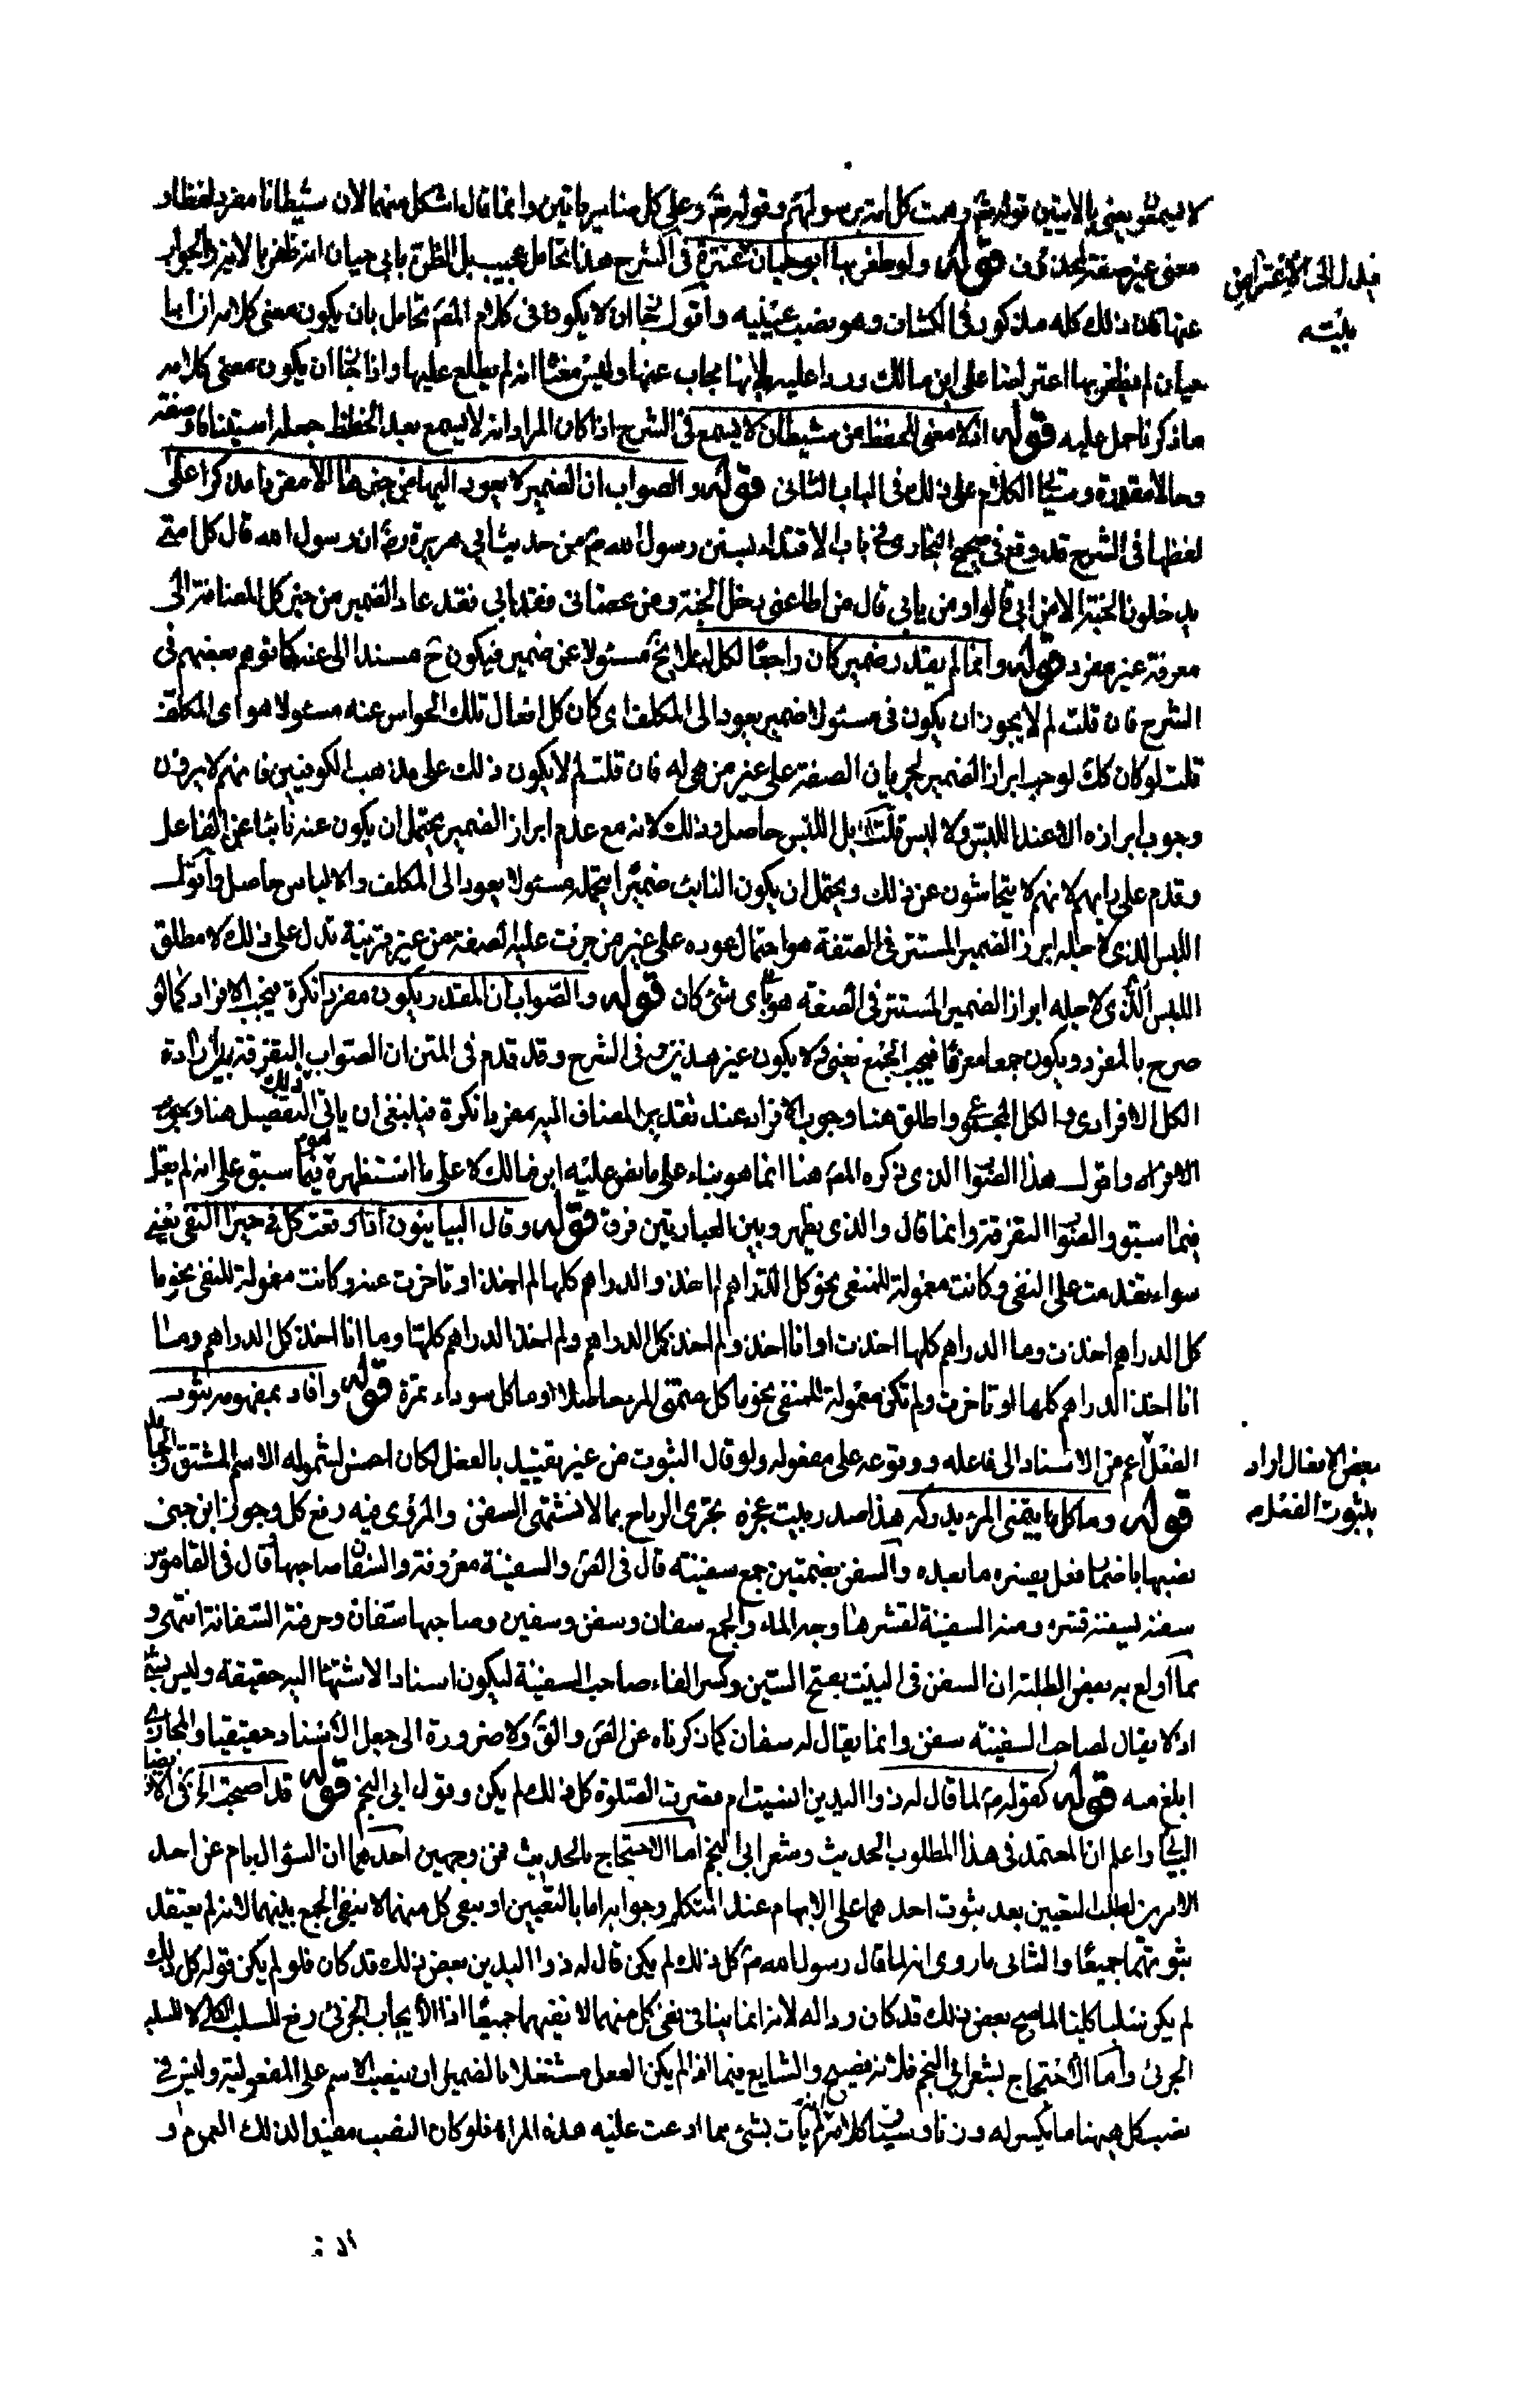 لا يسمعو يعنى بالايتين قوله تع وهمت كل امة برسولهم وقوله تع وعلى كل ضامر ياتين وانما قال اشكل منهما لان شيطانا مفرد لفظا و
معنى غير صفة لمحذوف قوله ولو ظفر بها ابو حيان فى الشرح هذا تحامل عجيب بل الظن بابى حيان انه ظفر بالاية والجواب
عنها فان ذلك كله مذكور فى الكشاف وهو نصب عينيه واقول يمكن ان لا يكون فى كلام المص تحامل بان يكون معنى كلامه ان ابا
حيان لم يظفر بها اعتراضا على ابن مالك وردا عليه لانها مجاب عنها وليس معناه انه لم يطلع عليها واذا امكن ان يكون معنى كلامه
ما ذكرنا حمل عليه قوله اذ لا معنى للحفظ من شيطان لا يسمع فى الشرح اذا كان المراد انه لا يسمع بعد الحفظ جعله استينافا وصفة
وحالا مقدرة وسياتى الكلام على ذلك فى الباب الثانى قوله والصواب ان الضمير لا يعود اليها من خبرها الا مفردا مذكرا على
لفظها فى الشرح قد وقع فى صحيح البخارى فى باب الاقتداء بسنن رسول الله ص من حديث ابى هريرة رض ان رسول الله قال كل امتى
يدخلون الجنة الا من ابى قالوا ومن يابى قال من اطاعنى دخل الجنة ومن عصانى فقد ابى فقد عاد الضمير من خبر كل المضافة الى
معرفة غير مفرد قوله وانما لم يقدر ضمير كان راجعا لكل لئلا يخلو مسئولا عن ضمير فيكون ح مسندا الى عنه كما توهم بعضهم فى
الشرح فان قلت لم لا يجوز ان يكون فى مسئولا ضمير يعود الى المكلف اى كان كل افعال تلك الحواس عنه مسئولا هو اى المكلف
قلت لو كان كك لوجب ابراز الضمير لجريان الصفة على غير من هى له فان قلت لم لا يكون ذلك على مذهب الكوفيين فانهم لا يرون
وجوب ابرازه الا عند اللبس ولا لبس قلت بل اللبس حاصل وذلك لانه مع عدم ابراز الضمير يحتمل ان يكون عنه نائبا عن الفاعل
وقدم على رايهم لانهم لا يتحاشون عن ذلك ويحتمل ان يكون النائب ضميرا يتحمله مسئولا يعود الى المكلف والالباس حاصل واقول
اللبس الذى لاجله ابراز الضمير المستتر فى الصفة هو احتمال عوده على غير من جرت عليه الصفة من غير قرينة تدل على ذلك لا مطلق
اللبس الذى لاجله ابراز الضمير المستتر فى الصفة هو باى شئ كان قوله والصواب ان المقدر يكون مفردا نكرة فيجب الافراد كما لو
صرح بالمفرد ويكون جمعا معرفا فيجب الجمع يعنى ولا يكون غير هذين فى الشرح وقد قدم فى المتن ان الصواب التفرقة بين ارادة
الكل الافرادى والكل المجموعى واطلق هنا وجوب الافراد عند تقدير المضاف اليه مفردا نكرة فينبغى ان ياتى ذلك التفصيل هنا
واقول هذا الصواب الذى ذكره المص هنا انما هو بناء على ما نص عليه ابن مالك لا على ما استظهره هو فيما سبق على انه لم يقل
فيما سبق والصواب التفرقة وانما قال والذى يظهر وبين العبارتين فرق قوله وقال البيانيون اذا وقعت كل فى حيز النفى يعنى
سواء تقدمت على النفى وكانت معمولة للمنفى نحو كل الدراهم لم اخذ والدراهم كلها لم اخذ او تاخرت عنه وكانت معمولة للنفى نحو ما
كل الدراهم اخذت وما الدراهم كلها اخذت او انا اخذ ولم اخذ كل الدراهم ولم اخذ الدراهم كلها وما انا اخذ كل الدراهم وما
انا اخذ الدراهم كلها او تاخرت ولم تكن معمولة للمنفى نحو ما كل متمنى المرء حاصلا او ما كل سوداء تمرة قوله وافاد بمفهومه ثبوت
الفعل اعم من الاسناد الى فاعله ووقوعه على مفعوله ولو قال الثبوت من غير تقييد بالفعل لكان احسن لشموله الاسم المشتق والجامد
قوله وما كل ما يتمنى المرء يدركه هذا صدر بيت عجزه تجرى الرياح بما لا تشتهى السفن والمروى فيه رفع كل وجوز ابن جنى
نصبها باضمار فعل يفسره ما بعده والسفن بضمتين جمع سفينة قال فى الص والسفينة معروفة والسفان صاحبها قال فى القاموس
سفنه يسفنه قشره ومنه السفينة لقشرها وجه الماء والجمع سفائن وسفن وسفين وصاحبها سفان وحرفته السفانة انتهى و
مما اولع به بعض الطلبة ان السفن فى البيت بفتح السين وكسر الفاء صاحب السفينة ليكون اسناد الاشتهاء اليه حقيقة وليس بشئ
اذ لا يقال لصاحب السفينة سفن وانما يقال له سفان كما ذكرناه عن الص والق ولا ضرورة الى جعل الاسناد حقيقيا والمجازى
ابلغ منه قوله كقوله ص لما قال له ذو اليدين انسيت ام قصرت الصلوة كل ذلك لم يكن وقول ابى النجم قوله قد اصبحت الخ فى الايضاح
البيت واعلم ان المعتمد فى هذا المطلوب الحديث وشعر ابى النجم اما الاحتجاج بالحديث فمن وجهين احدهما ان السؤال بام عن احد
الامرين لطلب التعيين بعد ثبوت احدهما على الابهام عند المتكلم وجوابه اما بالتعيين او بنفى كل منهما لا بنفى الجمع بينهما لانه لم يعتقد
ثبوتهما جميعا والثانى ما روى انه لما قال رسول الله ص كل ذلك لم يكن قال له ذو اليدين بعض ذلك قد كان فلو لم يكن قوله كل ذلك
لم يكن سلبا كليا لما صح بعض ذلك قد كان ردا له لانه انما ينافى نفى كل منهما لا نفيهما جميعا اذ الايجاب الجزئى رفع للسلب الكلى لا للسلب
الجزئى واما الاحتجاج بشعر ابى النجم فلانه فصيح والشايع فيما اذا لم يكن الفعل مشتغلا بالضمير ان ينصب الاسم على المفعولية وليس فى
نصب كل ههنا ما يكسر له وزنا وسياق كلامه انه لم يات بشئ مما ادعت عليه هذه المراة فلو كان النصب مفيدا لذلك العموم و
بعض الافعال اراد
بثبوت الفعل